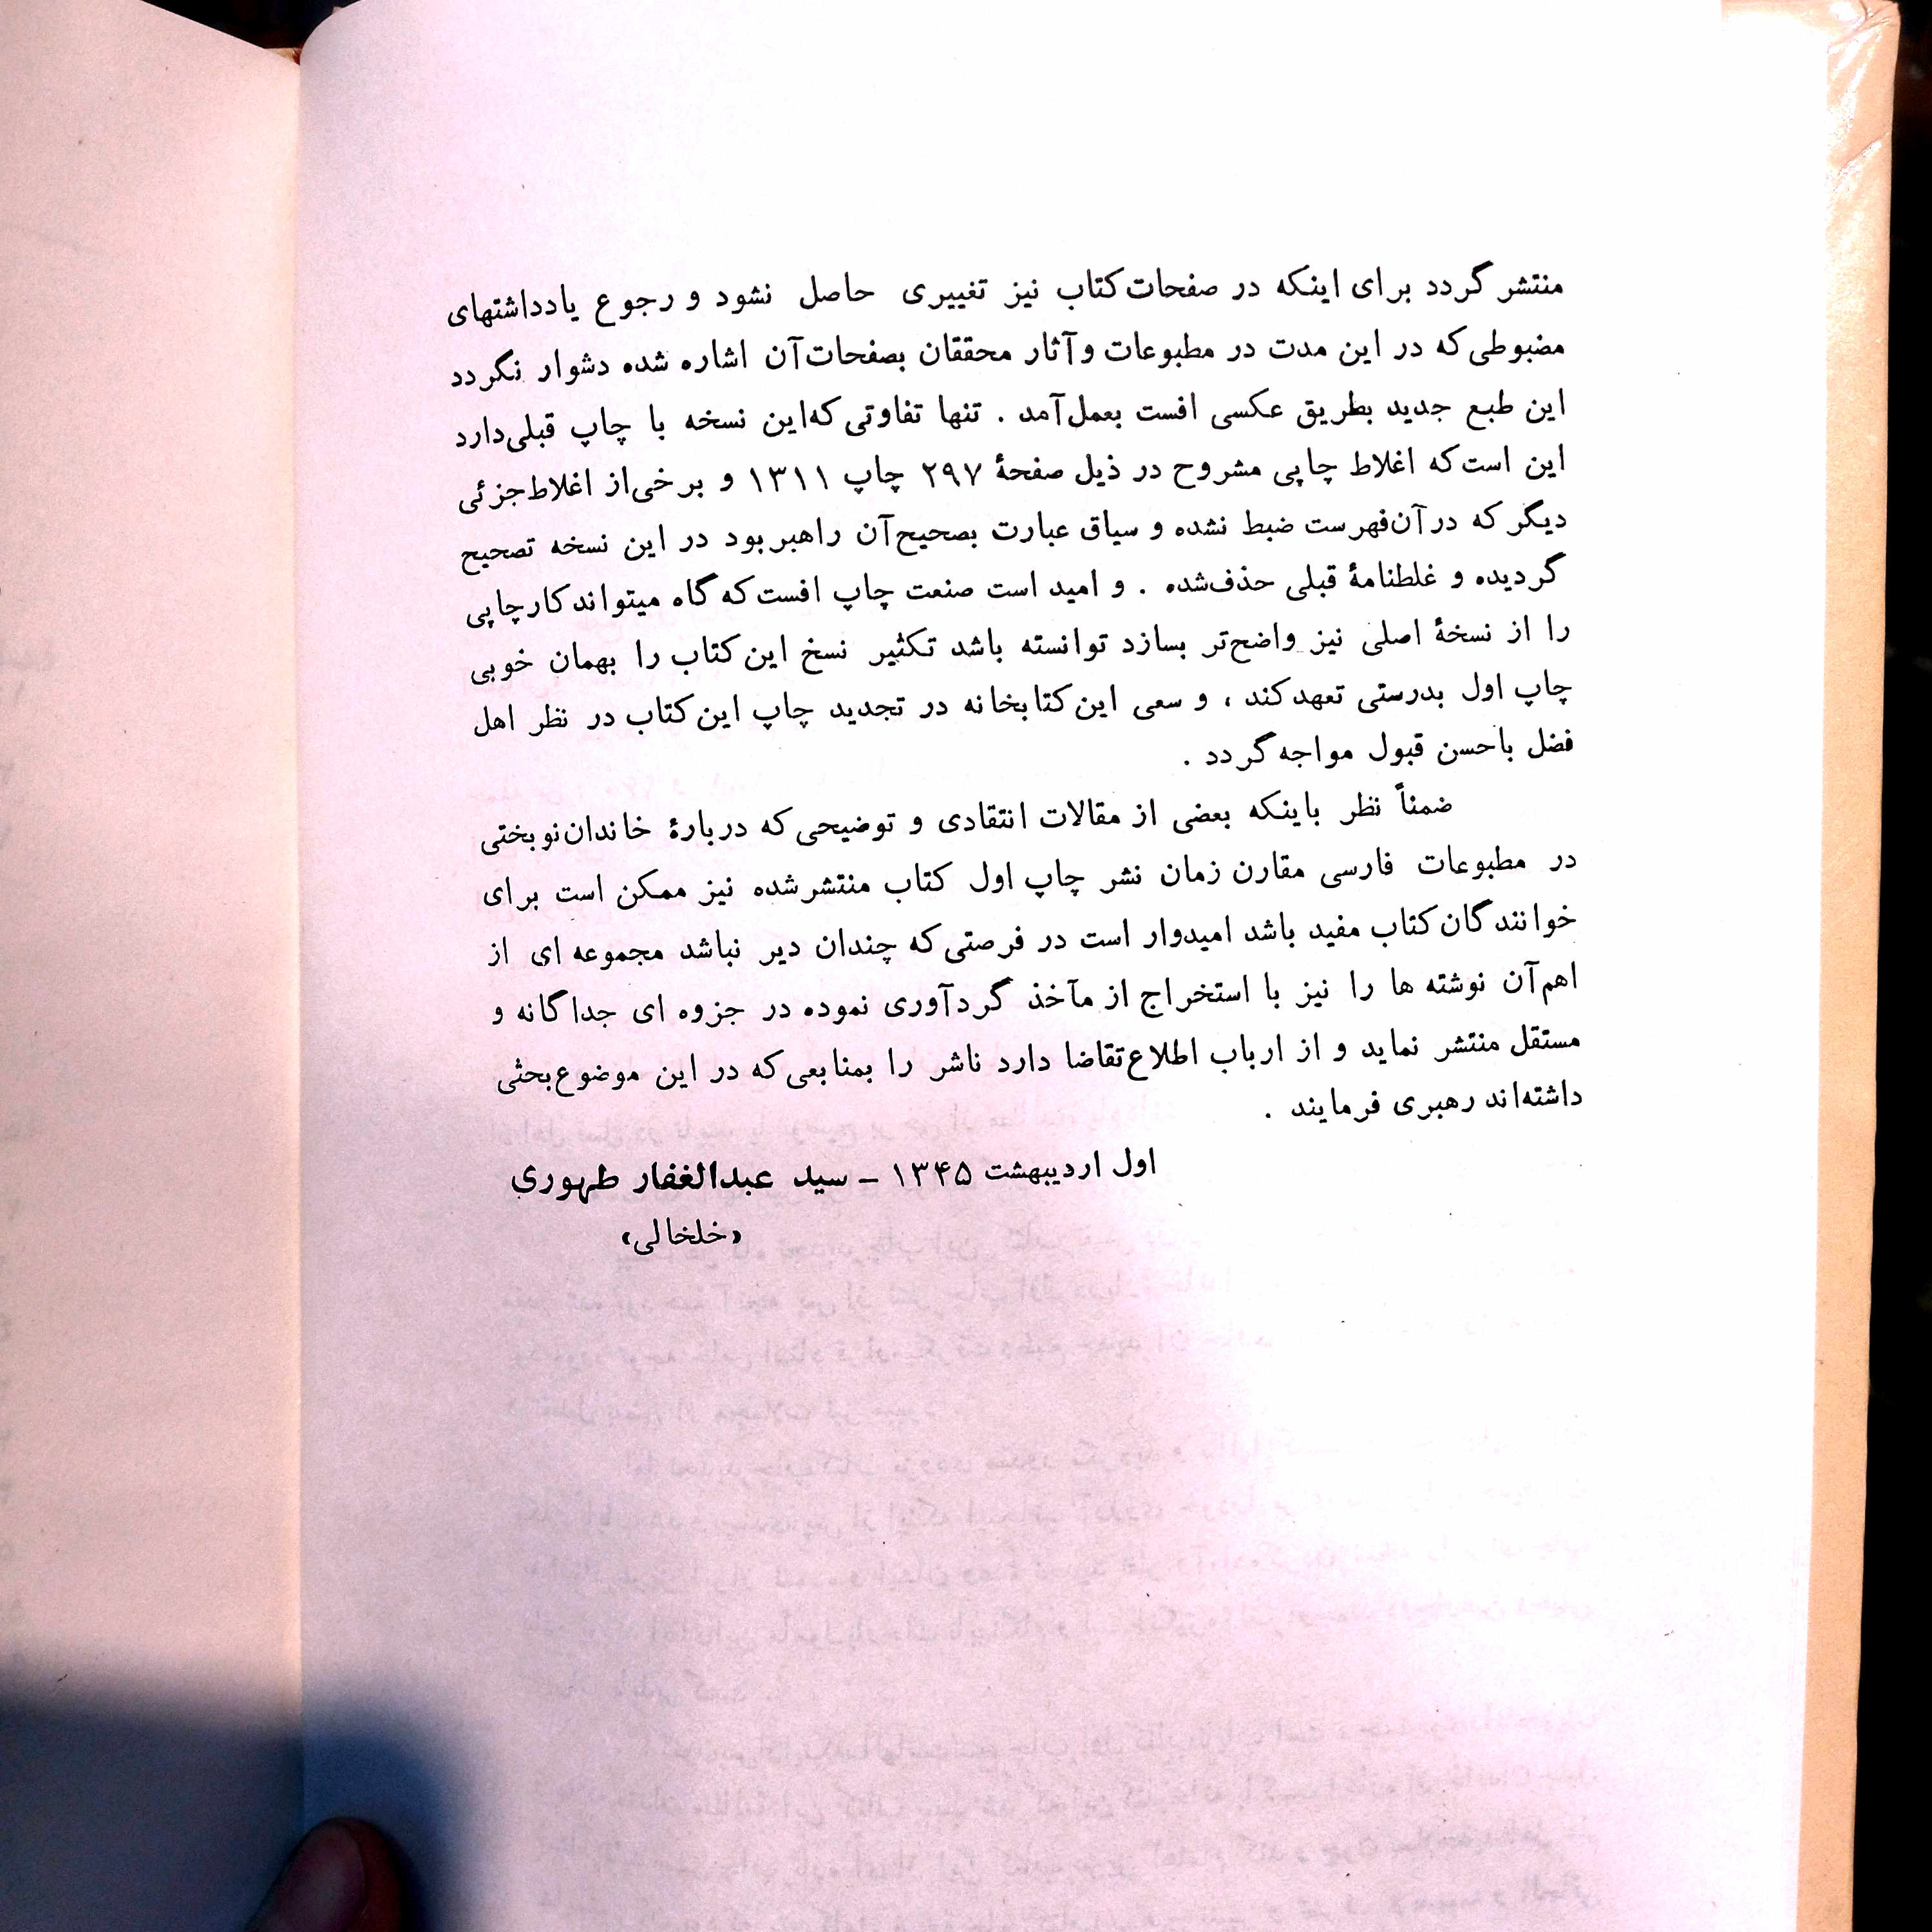 منتشر گردد برای اینکه در صفحات کتاب نیز تغییری حاصل نشود و رجوع یادداشتهای
مضبوطی که در این مدت در مطبوعات و آثار محققان بصفحات آن اشاره شده دشوار نگردد
این طبع جدید بطریق عکسی افست بعمل آمد . تنها تفاوتی که این نسخه با چاپ قبلی دارد
این است که اغلاط چاپی مشروح در ذیل صفحهٔ ۲۹۷ چاپ ۱۳۱۱ و برخی از اغلاط جزئی
دیگر که در آن فهرست ضبط نشده و سیاق عبارت بصحیح آن راهبر بود در این نسخه تصحیح
گردیده و غلطنامهٔ قبلی حذف شده . و امید است صنعت چاپ افست که گاه میتواند کار چاپی
را از نسخهٔ اصلی نیز واضح‌تر بسازد توانسته باشد تکثیر نسخ این کتاب را بهمان خوبی
چاپ اول بدرستی تعهد کند ، و سعی این کتابخانه در تجدید چاپ این کتاب در نظر اهل
فضل باحسن قبول مواجه گردد .
ضمناً نظر باینکه بعضی از مقالات انتقادی و توضیحی که دربارهٔ خاندان نوبختی
در مطبوعات فارسی مقارن زمان نشر چاپ اول کتاب منتشر شده نیز ممکن است برای
خوانندگان کتاب مفید باشد امیدوار است در فرصتی که چندان دیر نباشد مجموعه ای از
اهم آن نوشته ها را نیز با استخراج از مآخذ گردآوری نموده در جزوه ای جداگانه و
مستقل منتشر نماید و از ارباب اطلاع تقاضا دارد ناشر را بمنابعی که در این موضوع بحثی
داشته‌اند رهبری فرمایند .
اول اردیبهشت ۱۳۴۵ – سید عبدالغفار طهوری
«خلخالی»